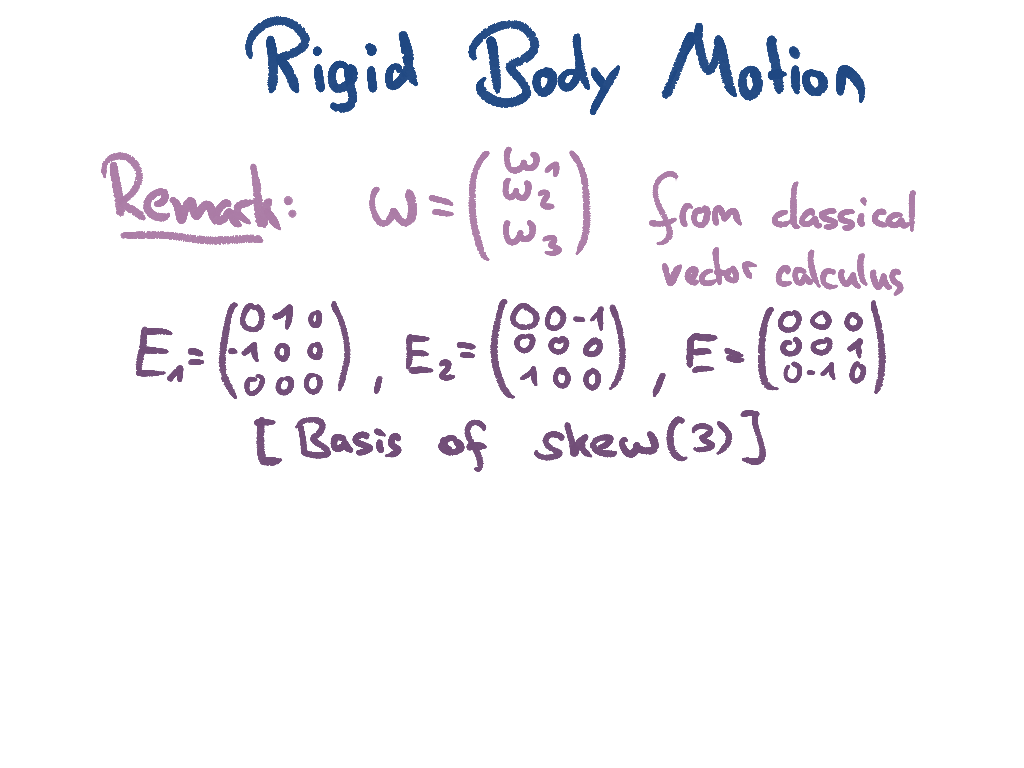 Rigid Body Motion
Remark: ω = (ω1 ω2 ω3) from classical
vector calculus
E1 = (0 1 0 -1 0 0 0 0 0), E2 = (0 0 -1 0 0 0 1 0 0), E = (0 0 0 0 0 1 0 -1 0)
[Basis of skew(3)]